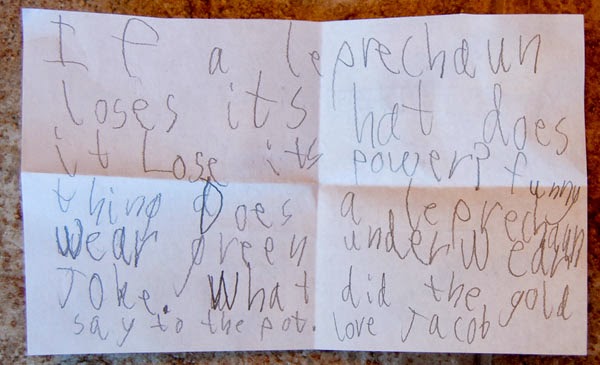 If a leprechaun
loses it's hat does
it Lose its power? funny
thing Does a leprechaun
wear green underwear
Joke. What did the gold
say to the pot. love Jacob